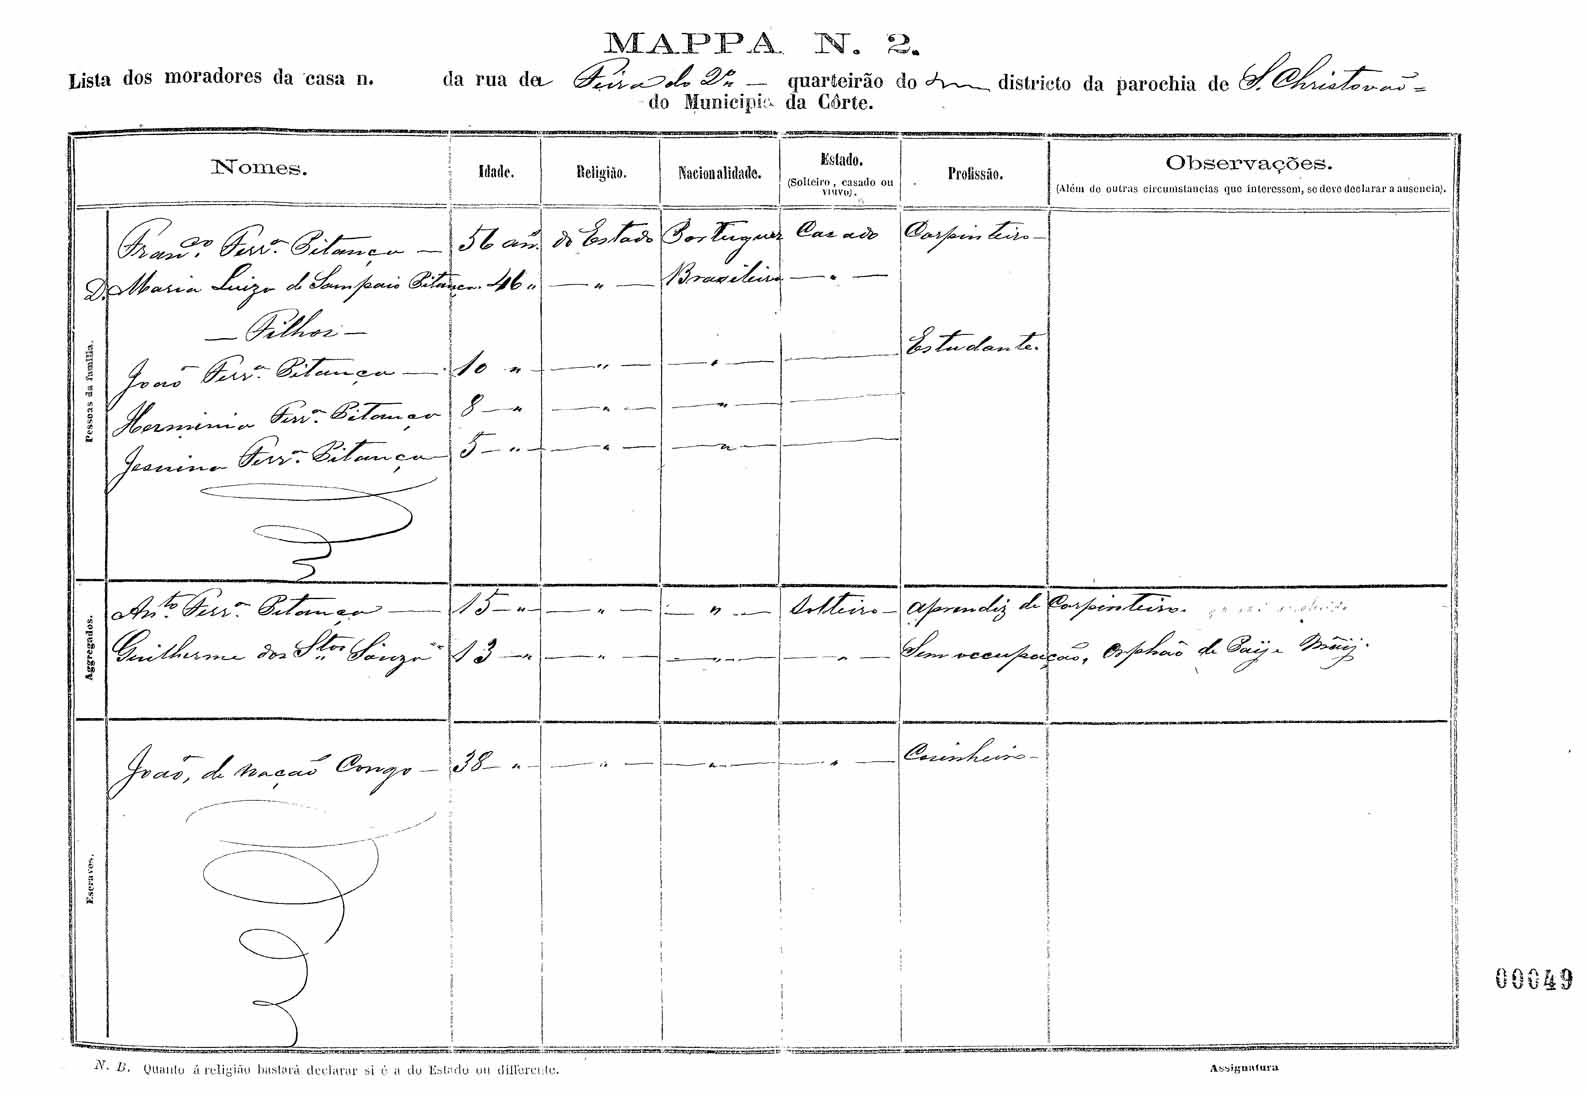 MAPPA N. 2.
Lista dos moradores da casa n. da rua da Feira do 2º quarteirão do districto da parochia de S. Christovão
do Municipio da Côrte.
Nomes. Idade. Religião. Nacionalidade. Estado. (Solteiro, casado ou viuvo). Profissão. Observações. (Além de outras circumstancias que interessem, se deve declarar a ausencia).
Pessoas da familia.
Franco. Ferra. Pitança — 56 an. do Estado Portuguez Casado Carpinteiro —
D. Maria Luiza de Sampaio Pitança. 46 " — " — Brazileira — " —
— Filhos —
João Ferra. Pitança — 10 " — " — — " — — Estudante.
Herminia Ferra. Pitança 8 — " — " — — " — —
Jesuina Ferra. Pitança 5 — " — — " — — " — —
Aggregados.
Anto. Ferra. Pitança — 15 — " — — " — — " — Solteiro — Aprendiz de Carpinteiro.
Guilherme dos Stos Souza 13 — " — " — — " — — " — Sem occupação, Orphão de Paÿ e Mãÿ.
Escravos.
João, de nação Congo — 38 — " — — " — — " — — " — Cosinheiro —
00049
N. B. Quanto á religião bastará declarar si é a do Estado ou differente.
Assignatura